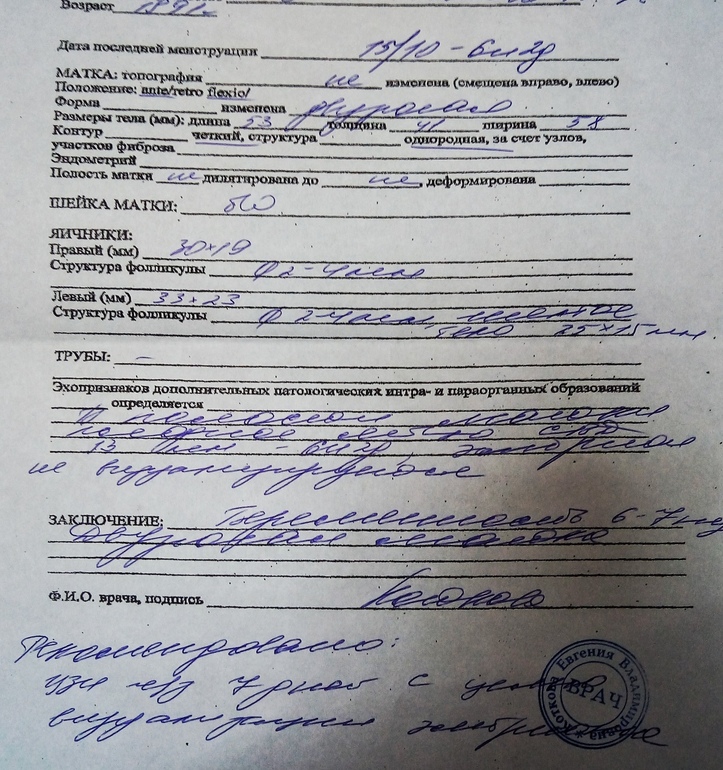 Возраст 1991г
Дата последней менструации 15/10 - 6н2д
МАТКА: топография не изменена (смещена вправо, влево)
Положение: ante/retro flexio/
Форма изменена двурогая
Размеры тела (мм): длина 53 толщина 41 ширина 58
Контур четкий, структура однородная, за счет узлов,
участков фиброза
Эндометрий
Полость матки не дилятирована до не, деформирована
ШЕЙКА МАТКИ: б/о
ЯИЧНИКИ:
Правый (мм) 30×19
Структура фолликулы 2-4мм
Левый (мм) 33×23
Структура фолликулы 2-4мм, желтое
тело 25×15мм.
ТРУБЫ: –
Эхопризнаков дополнительных патологических интра- и параорганных образований
определяется
В полости матки
плодное яйцо СВД
13 мм - 6н2д, эмбрион
не визуализируется
ЗАКЛЮЧЕНИЕ: Беременность 6-7нед
Двурогая матка
Ф.И.О. врача, подпись
Рекомендовано:
УЗИ ч/з 7 дней с целью
визуализации эмбриона
Коткова Евгения Владимировна
ВРАЧ